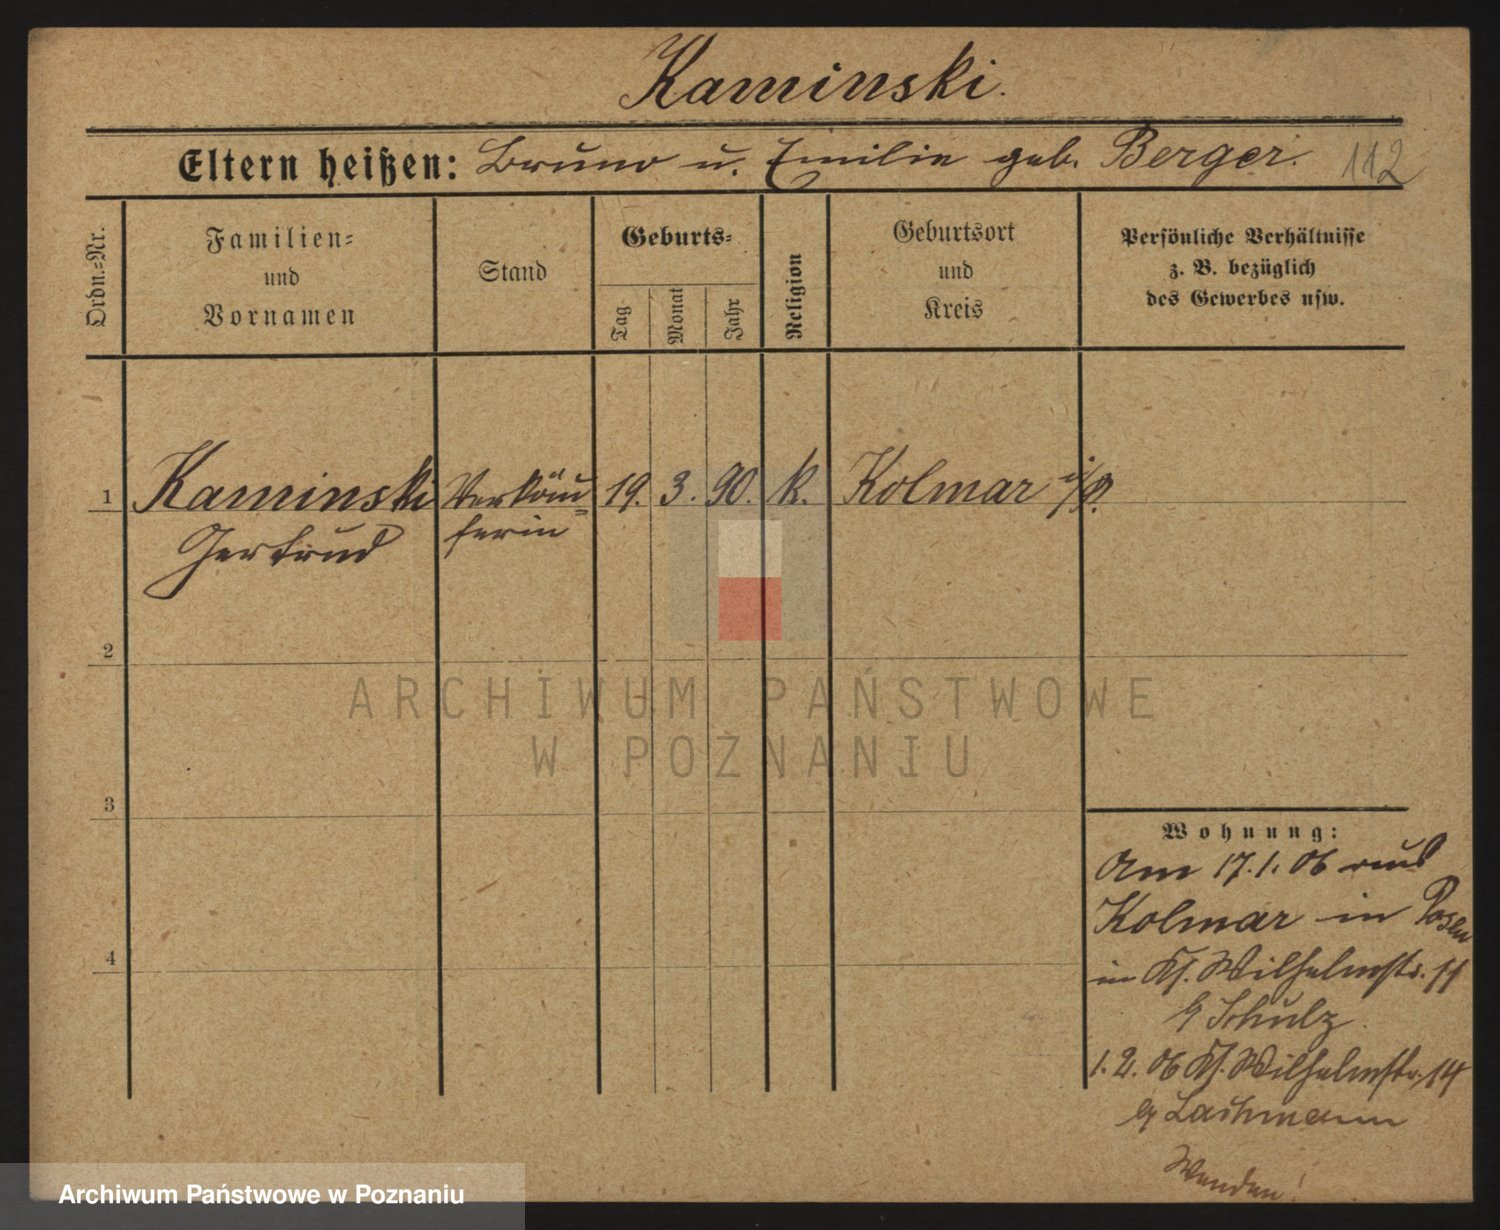 Kaminski.
Eltern heißen: Bruno u. Emilie geb. Berger. 112
Ordn.-Nr.
Familien-
und
Vornamen
Stand
Geburts-
Tag
Monat
Jahr
Religion
Geburtsort
und
Kreis
Persönliche Verhältnisse
z. B. bezüglich
des Gewerbes usw.
1 Kaminski Verkäu- 19. 3. 90. k. Kolmar i/P.
Gertrud ferin
2
ARCHIWUM PAŃSTWOWE
W POZNANIU
3
Wohnung:
Am 17.1.06 aus
Kolmar in Posen
in Kl. Wilhelmstr. 11
b/ Schulz.
4
1.2.06 Kl. Wilhelmstr. 14
b/ Lachmann
Wenden!
Archiwum Państwowe w Poznaniu